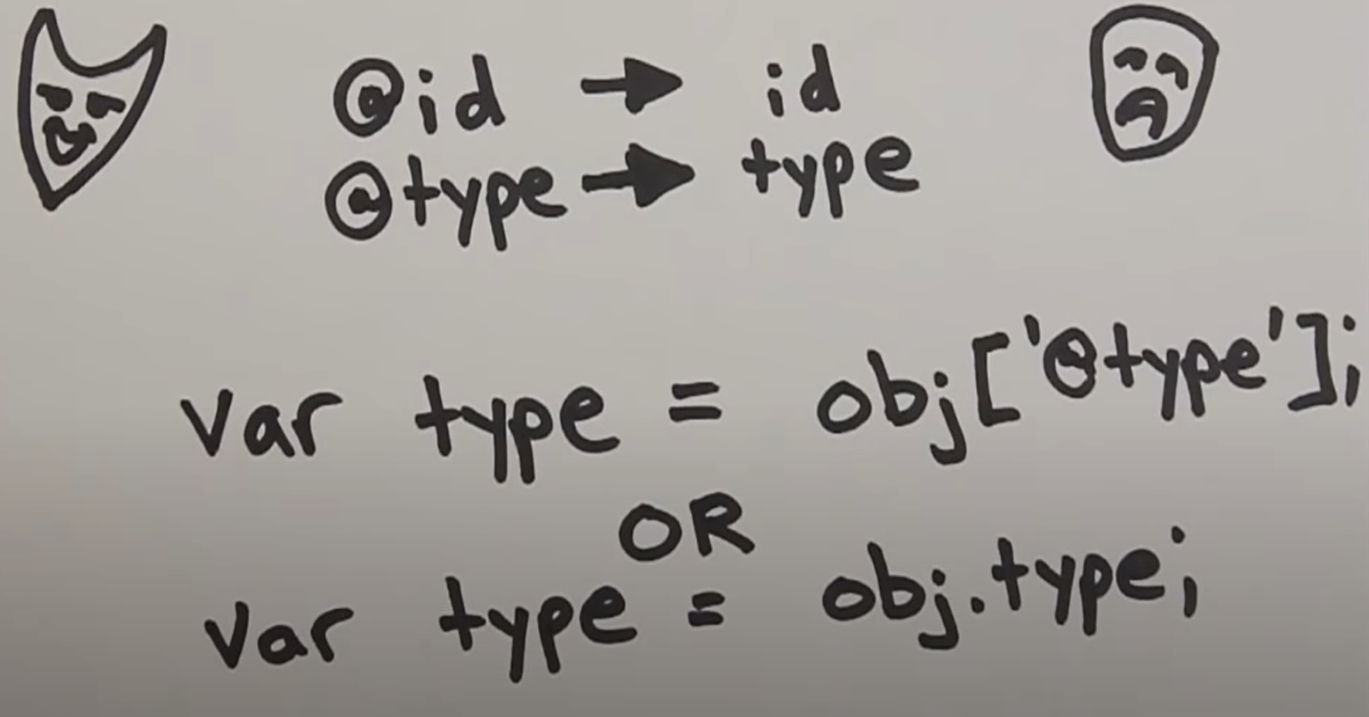 @id → id
@type → type
var type = obj['@type'];
OR
var type = obj.type;